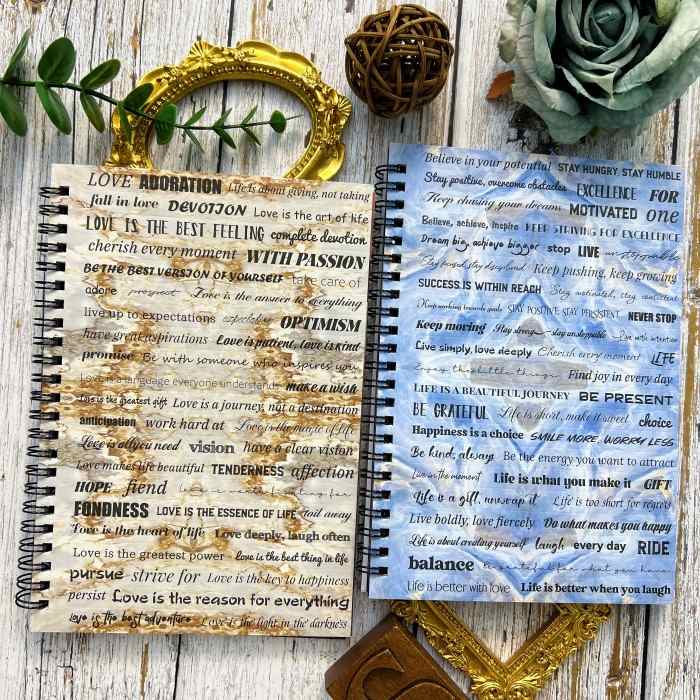 LOVE ADORATION Life is about giving, not taking
fall in love DEVOTION Love is the art of life
LOVE IS THE BEST FEELING complete devotion
cherish every moment WITH PASSION
BE THE BEST VERSION OF YOURSELF take care of
adore prospect Love is the answer to everything
live up to expectations expectation OPTIMISM
have great aspirations Love is patient, love is kind
promise Be with someone who inspires you
Love is a language everyone understands make a wish
Love is the greatest gift Love is a journey, not a destination
anticipation work hard at Love is the magic of life
Love is all you need vision have a clear vision
Love makes life beautiful TENDERNESS affection
HOPE fiend love is worth fighting for
FONDNESS LOVE IS THE ESSENCE OF LIFE toil away
Love is the heart of life Love deeply, laugh often
Love is the greatest power Love is the best thing in life
pursue strive for Love is the key to happiness
persist Love is the reason for everything
Love is the best adventure Love is the light in the darkness
Believe in your potential STAY HUNGRY, STAY HUMBLE
Stay positive, overcome obstacles EXCELLENCE FOR
Keep chasing your dreams MOTIVATED one
Believe, achieve, inspire KEEP STRIVING FOR EXCELLENCE
Dream big, achieve bigger stop LIVE unstoppable
Stay focused, stay disciplined Keep pushing, keep growing
SUCCESS IS WITHIN REACH Stay motivated, stay consistent
Keep working towards goals STAY POSITIVE, STAY PERSISTENT NEVER STOP
Keep moving Stay strong, stay unstoppable Live with intention
Live simply, love deeply Cherish every moment LIFE
Enjoy the little things Find joy in every day
LIFE IS A BEAUTIFUL JOURNEY BE PRESENT
BE GRATEFUL Life is short, make it sweet choice
Happiness is a choice SMILE MORE, WORRY LESS
Be kind, always Be the energy you want to attract
Live in the moment Life is what you make it GIFT
Life is a gift, unwrap it Life is too short for regrets
Live boldly, love fiercely Do what makes you happy
Life is about creating yourself laugh every day RIDE
balance be grateful for what you have
Life is better with love Life is better when you laugh